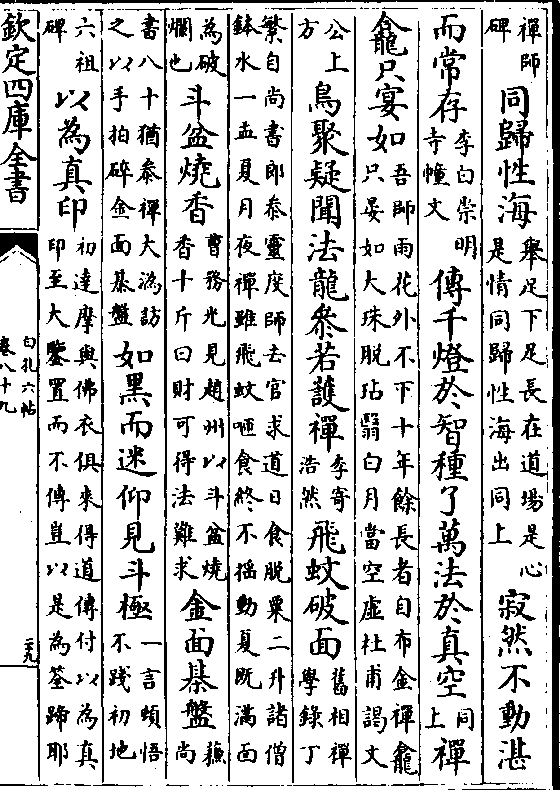 禪師碑同歸性海舉足下足長在道場是心是情同歸性海出同上寂然不動湛
而常存李白崇明寺幢文傳千燈於智種了萬法於真空同上禪
龕只宴如吾師雨花外不下十年餘長者自布金禪龕只晏如大珠脫玷翳白月當空虛杜甫謁文
公上方鳥聚疑聞法龍參若護禪李寄浩然飛蚊破面舊相禪學錄丁
繁自尚書郎叅靈度師去官求道日食脫粟二升諸僧鉢水一盂夏月夜禪雖飛蚊咂食終不揺動夏既滿面
為破爛也斗盆燒香曹務光見趙州以斗盆燒香十斤曰財可得法難求金面棊盤蘓尚
書八十猶叅禪大溈訪之以手拍碎金面棊盤如黑而迷仰見斗極一言頓悟不踐初地
六祖碑以為真印初達摩與佛衣俱來得道傳付以為真印至大鑒置而不傳豈以是為筌蹄耶
欽定四庫全書
白孔六帖
卷八十九
二九